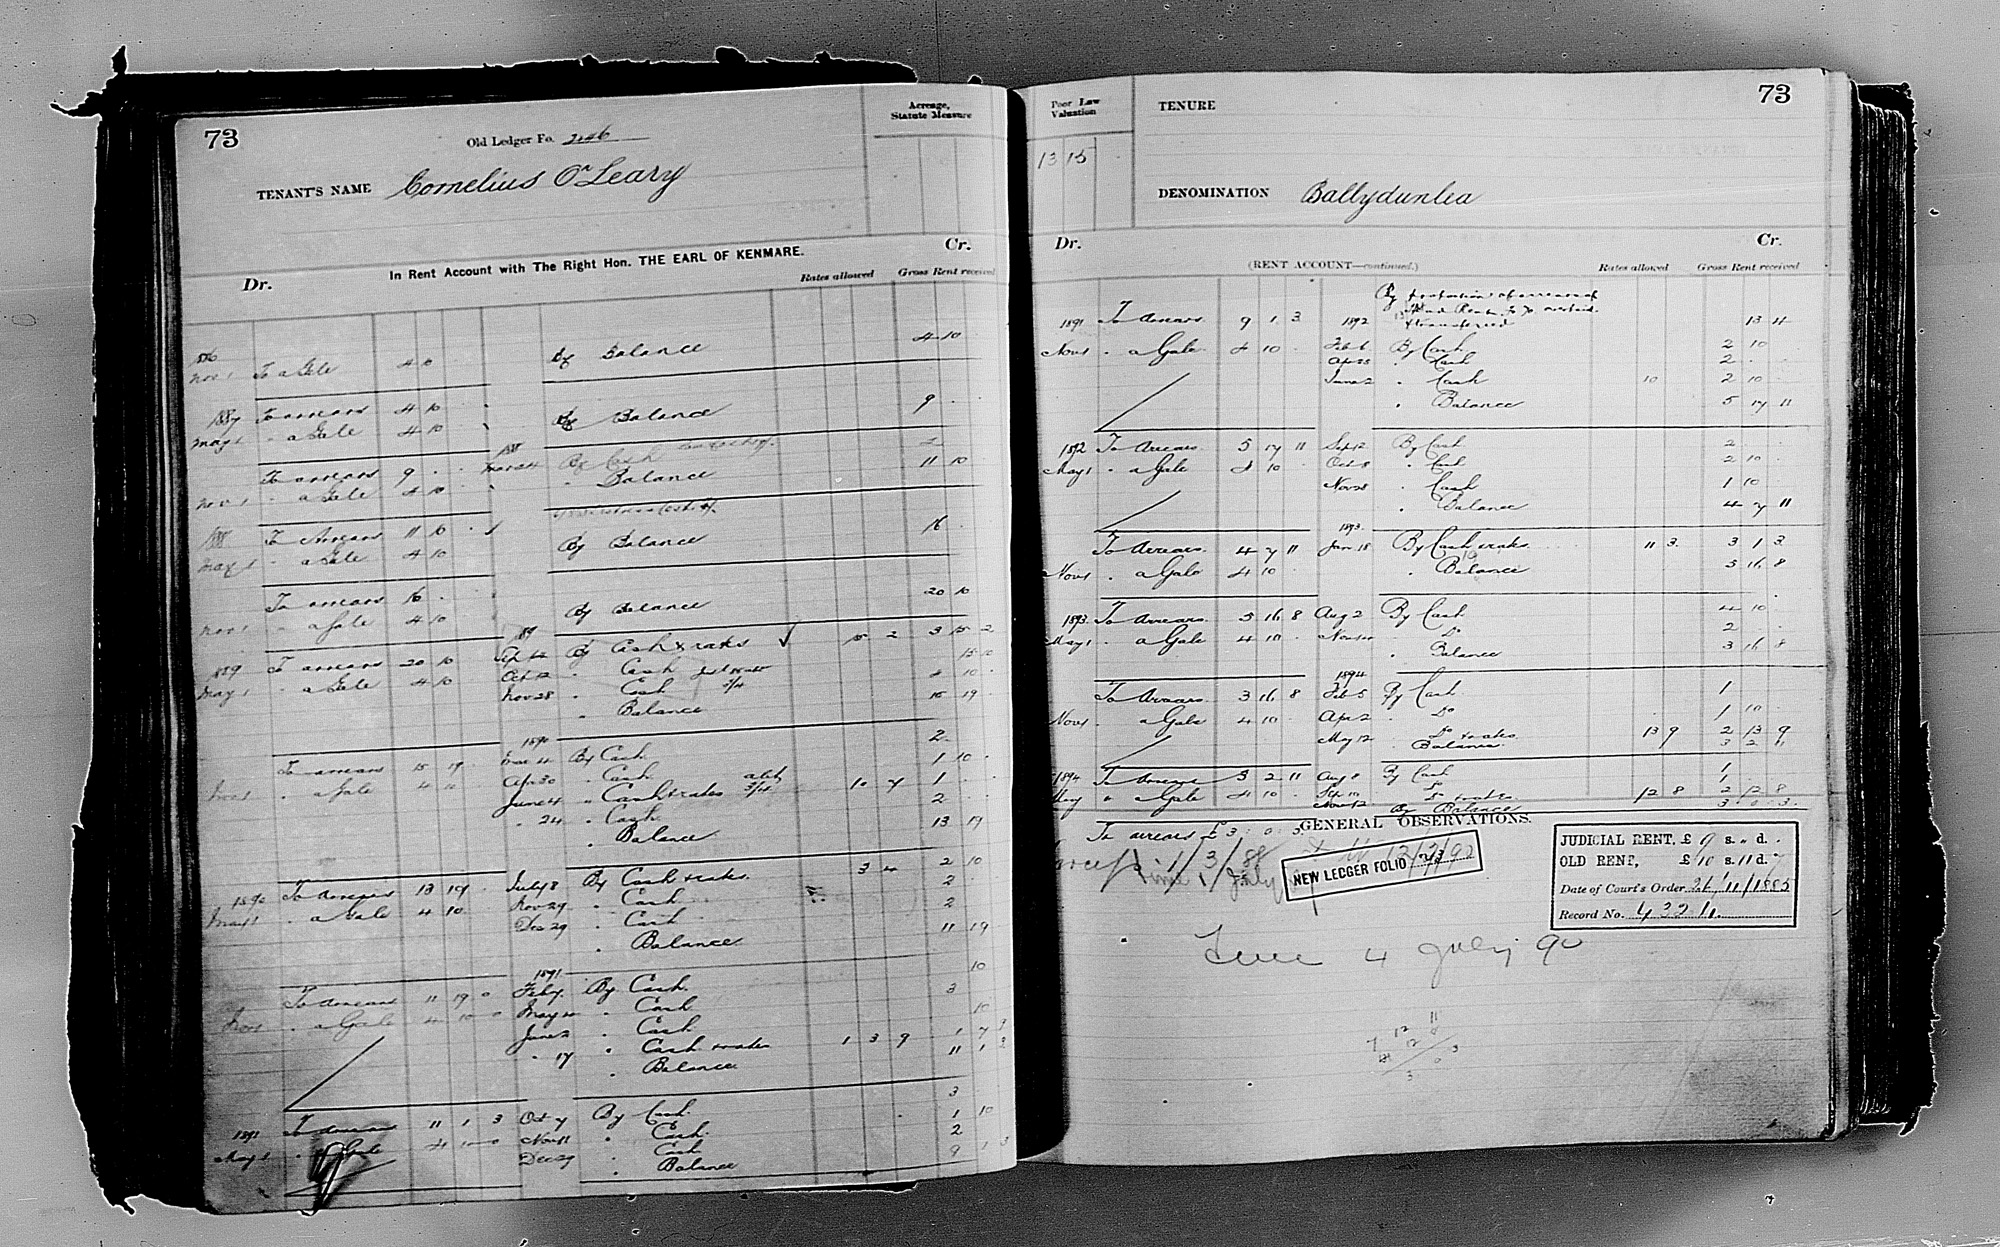 73
Old Ledger Fo. 246
Acreage,
Statute Measure
TENANT'S NAME Cornelius O'Leary
In Rent Account with The Right Hon. THE EARL OF KENMARE.
Dr. Cr.
Rates allowed Gross Rent received
1886
Nov 1 To a Gale 4 10 By Balance 4 10
1887 To arrears 4 10
May 1 " a Gale 4 10 By Balance 9
To arrears 9 By Cash 2
Nov 1 " a Gale 4 10 " Balance 11 10
1888 To Arrears 11 10
May 1 " a Gale 4 10 By Balance 16
To arrears 16
Nov 1 " a Gale 4 10 By Balance 20 10
1889
1889 To arrears 20 10 Sep By Cash & rates 15 2 3 15 2
May 1 " a Gale 4 10 Oct 12 " Cash 15 10
Nov 28 " Cash 4 10
" Balance 15 19
1890
To arrears 15 19 By Cash 2
Nov 1 " a Gale 4 10 Apr 30 " Cash 1 10
June 4 " Cash & rates 10 7 1
" 24 " Cash 2
" Balance 13 19
1890 To arrears 13 19 July 8 By Cash & rates 3 4 2 10
May 1 " a Gale 4 10 Nov 29 " Cash 2
Dec 29 " Cash 2
" Balance 11 19
1891
To arrears 11 19 0 Feb 7 By Cash 10
Nov 1 " a Gale 4 10 0 May " Cash 3
June 2 " Cash 10
" 17 " Cash & rates 1 3 9 1 7 9
" Balance 11 1 3
1891 To arrears 11 1 3 Oct 7 By Cash 3
May 1 " a Gale 4 10 0 Nov 11 " Cash 1 10
Dec 29 " Cash 2
" Balance 9 1 3
73
Poor Law
Valuation
13 15
TENURE
DENOMINATION Ballydunlea
Dr. Cr.
(RENT ACCOUNT—continued.)
Rates allowed Gross Rent received
By proportion of arrears of
& transferred
1891 To Arrears 9 1 3 1892 13 4
Nov 1 " a Gale 4 10 Feb 6 By Cash 2 10
Apr 25 " Cash 2
June 2 " Cash 10 2 10
" Balance 5 17 11
1892 To Arrears 5 17 11 Sep 12 By Cash 2
May 1 " a Gale 4 10 Oct 8 " Cash 2 10
Nov 28 " Cash 1 10
" Balance 4 7 11
1893
To Arrears 4 7 11 Jan 18 By Cash & rates 11 3 3 1 3
Nov 1 " a Gale 4 10 " Balance 5 16 8
1893 To Arrears 5 16 8 Aug 2 By Cash 4 10
May 1 " a Gale 4 10 Nov " Do 2
" Balance 3 16 8
1894
To Arrears 3 16 8 Feb 5 By Cash 1
Nov 1 " a Gale 4 10 Apr 2 " Do 1 10
May 12 " Do & rates 13 9 2 13 9
Balance 3 2 11
1894 To Arrears 3 2 11 Aug 8 By Cash 1
May " a Gale 4 10 Sep 10 " Do 1
Nov 12 " Do & rates 12 8 2 12 8
By Balance 3 0 3
To arrears £3 : 0 : 3
GENERAL OBSERVATIONS.
NEW LEDGER FOLIO 73
JUDICIAL RENT, £ 9 s. " d. "
OLD RENT, £ 10 s. 11 d. 7
Date of Court's Order 26/11/1885
Record No. 4324
Time 4 July 90